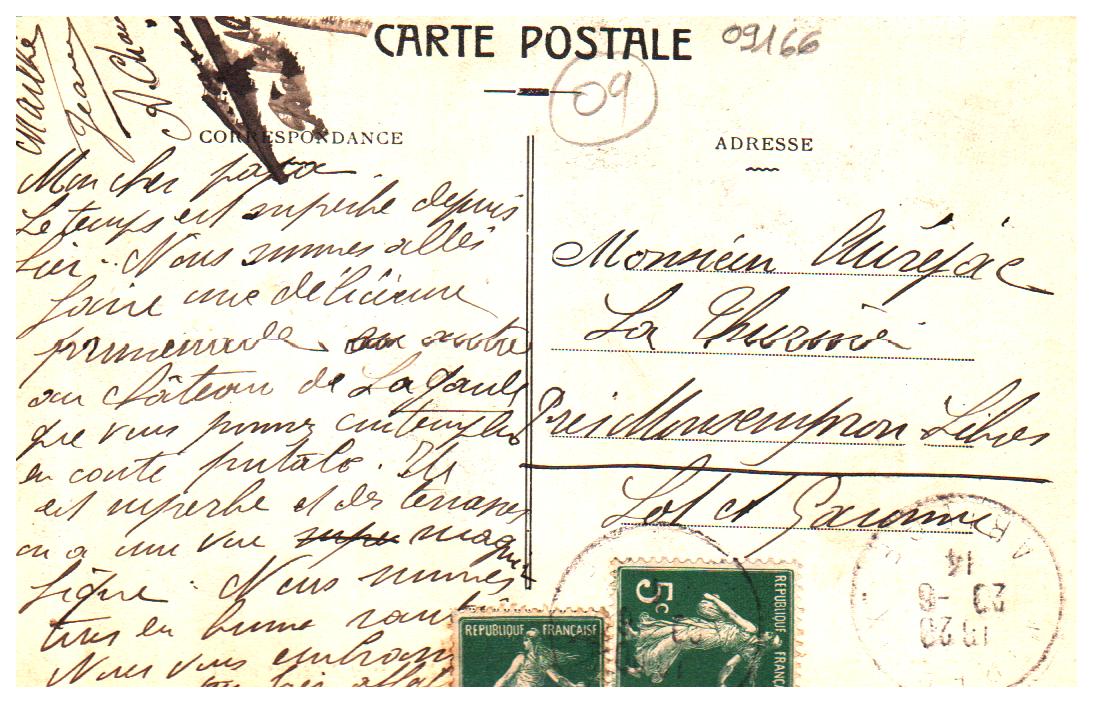 CARTE POSTALE
09166
09
CORRESPONDANCE
ADRESSE
Jeanne
Mon cher papa
Le temps est superbe depuis
hier. Nous sommes allés
faire une délicieuse
promenade
au château de Lagarde
que vous pouvez contempler
en carte postale. Il
est superbe et des terrasses
on a une vue magni
fique. Nous sommes
tous en bonne santé
Nous vous embrassons
Monsieur
La
Près Monsempron Libos
Lot et Garonne
REPUBLIQUE FRANÇAISE
5c
REPUBLIQUE FRANÇ
23 -8
14